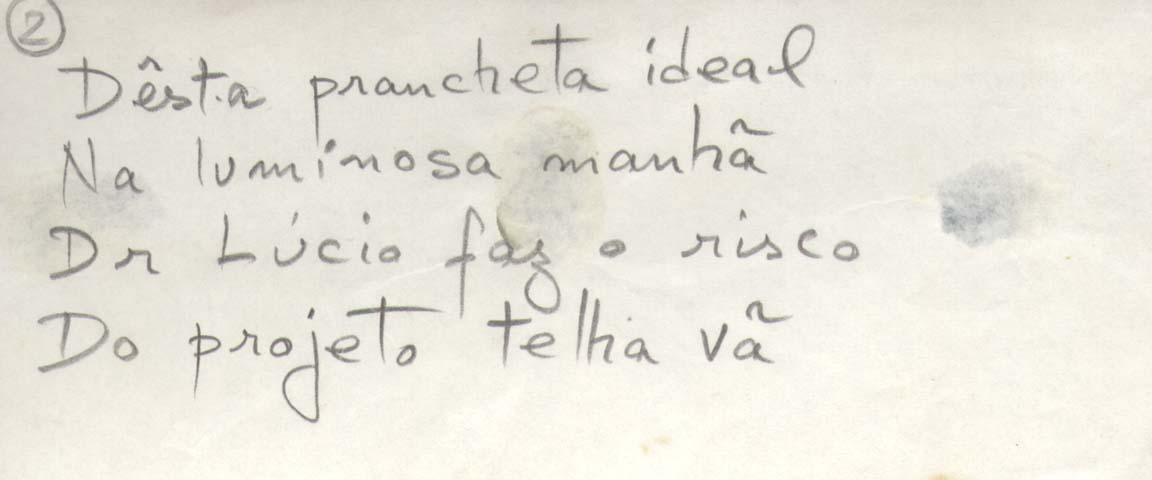 ②
Dêsta prancheta ideal
Na luminosa manhã
Dr Lúcio faz o risco
Do projeto telha vã